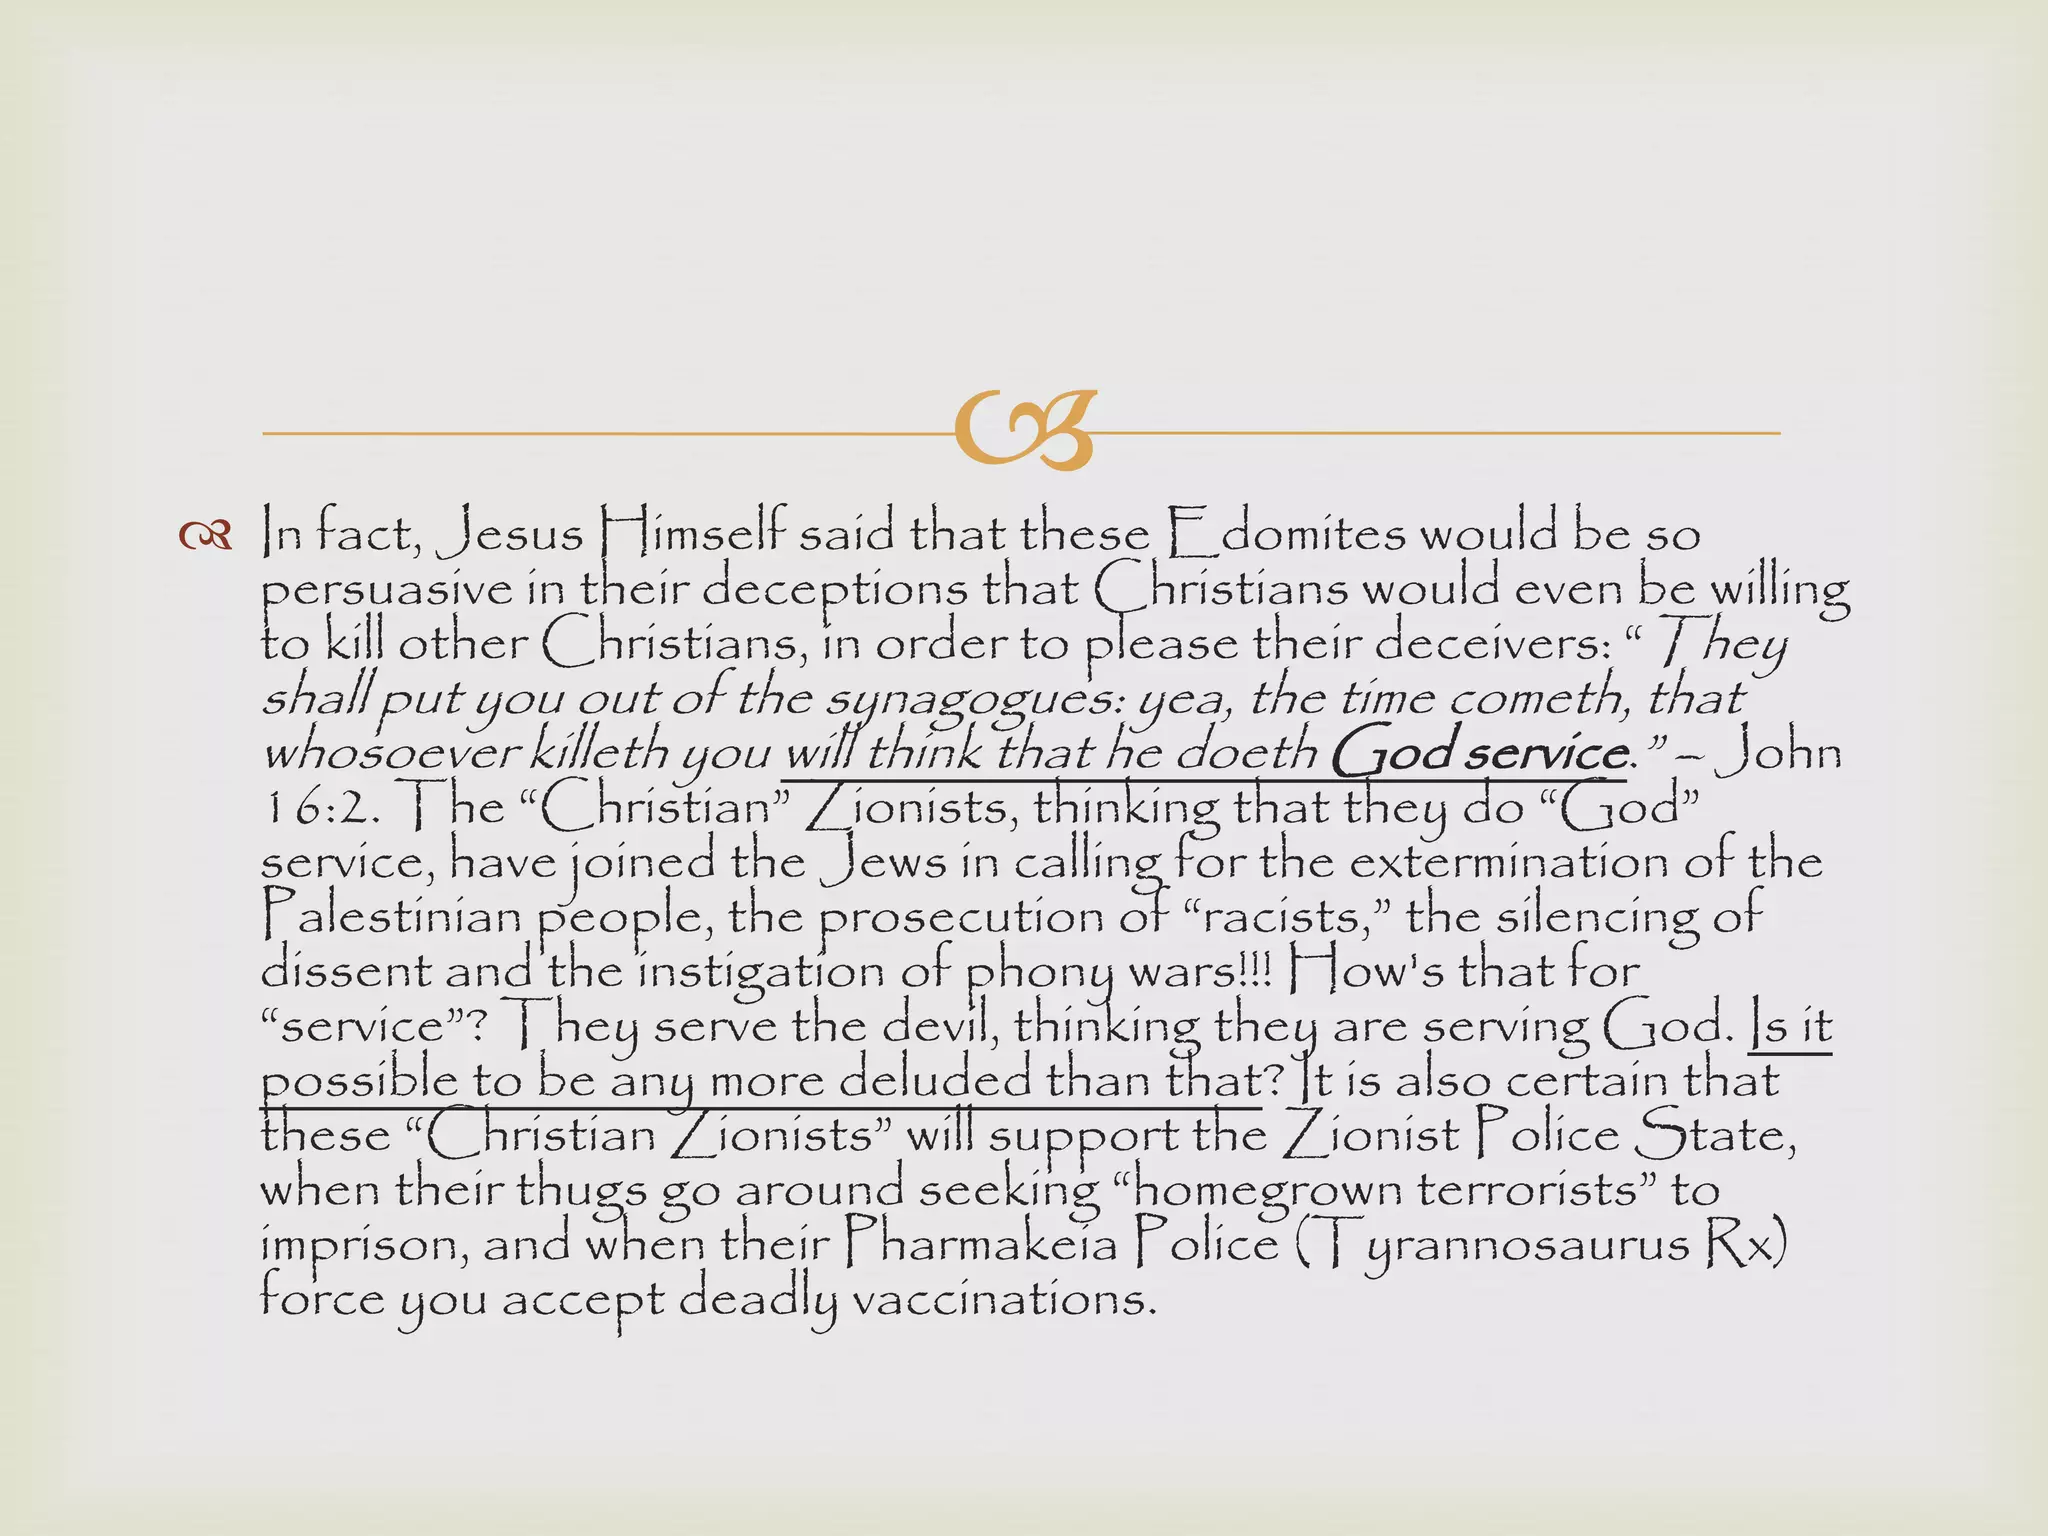 In fact, Jesus Himself said that these Edomites would be so
persuasive in their deceptions that Christians would even be willing
to kill other Christians, in order to please their deceivers: “ They
shall put you out of the synagogues: yea, the time cometh, that
whosoever killeth you will think that he doeth God service.” – John
16:2. The “Christian” Zionists, thinking that they do “God”
service, have joined the Jews in calling for the extermination of the
Palestinian people, the prosecution of “racists,” the silencing of
dissent and the instigation of phony wars!!! How's that for
“service”? They serve the devil, thinking they are serving God. Is it
possible to be any more deluded than that? It is also certain that
these “Christian Zionists” will support the Zionist Police State,
when their thugs go around seeking “homegrown terrorists” to
imprison, and when their Pharmakeia Police (Tyrannosaurus Rx)
force you accept deadly vaccinations.